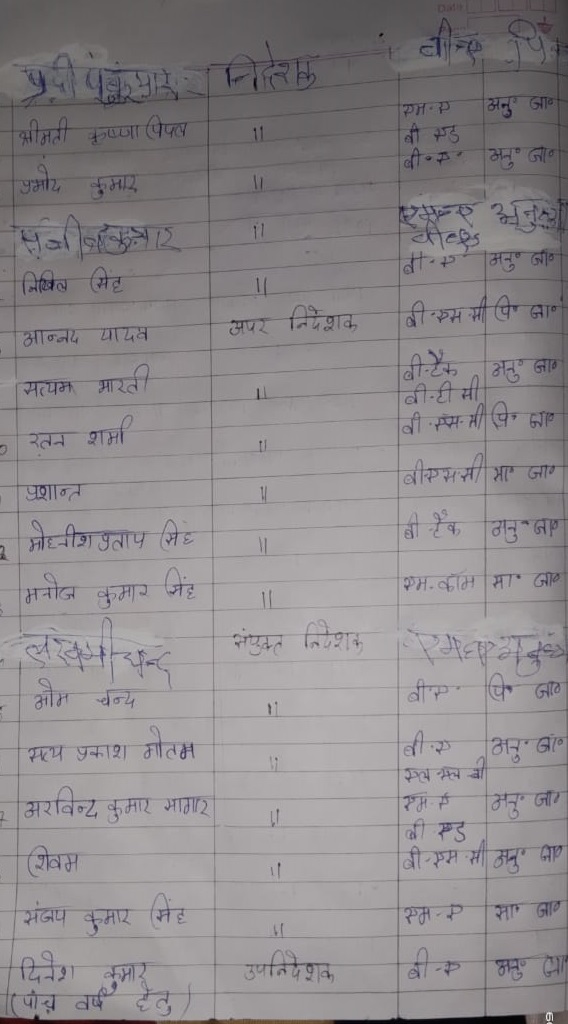 प्रदीप कुमार निदेशक बी॰ए पि॰
श्रीमती कृष्णा पिपल " एम॰ए बी एड अनु॰ जा॰
प्रमोद कुमार " बी॰ए॰ अनु॰ जा॰
संजीव कुमार " एम॰ए बी॰एड अनु॰
निखिल सिंह " बी॰ए अनु॰ जा॰
आनन्द यादव अपर निदेशक बी॰एस सी पि॰ जा॰
सत्यम भारती " बी॰टैक बी॰टी सी अनु॰ जा॰
रतन शर्मा " बी॰एस॰सी पि॰ जा॰
प्रशान्त " बी॰एस॰सी सा॰ जा॰
मोहनीश प्रताप सिंह " बी॰टैक अनु॰ जा॰
मनोज कुमार सिंह " एम॰कॉम सा॰ जा॰
लक्ष्मी चन्द संयुक्त निदेशक एम॰ए
ओम चन्द " बी॰ए॰ पि॰ जा॰
सत्य प्रकाश गौतम " बी॰ए एल एल बी अनु॰ जा॰
अरविन्द कुमार सागर " एम॰ए बी एड अनु॰ जा॰
शिवम " बी॰एस सी अनु॰ जा॰
संजय कुमार सिंह " एम॰ए सा॰ जा॰
दिनेश कुमार उपनिदेशक बी॰ए अनु॰
(पांच वर्ष हेतु)